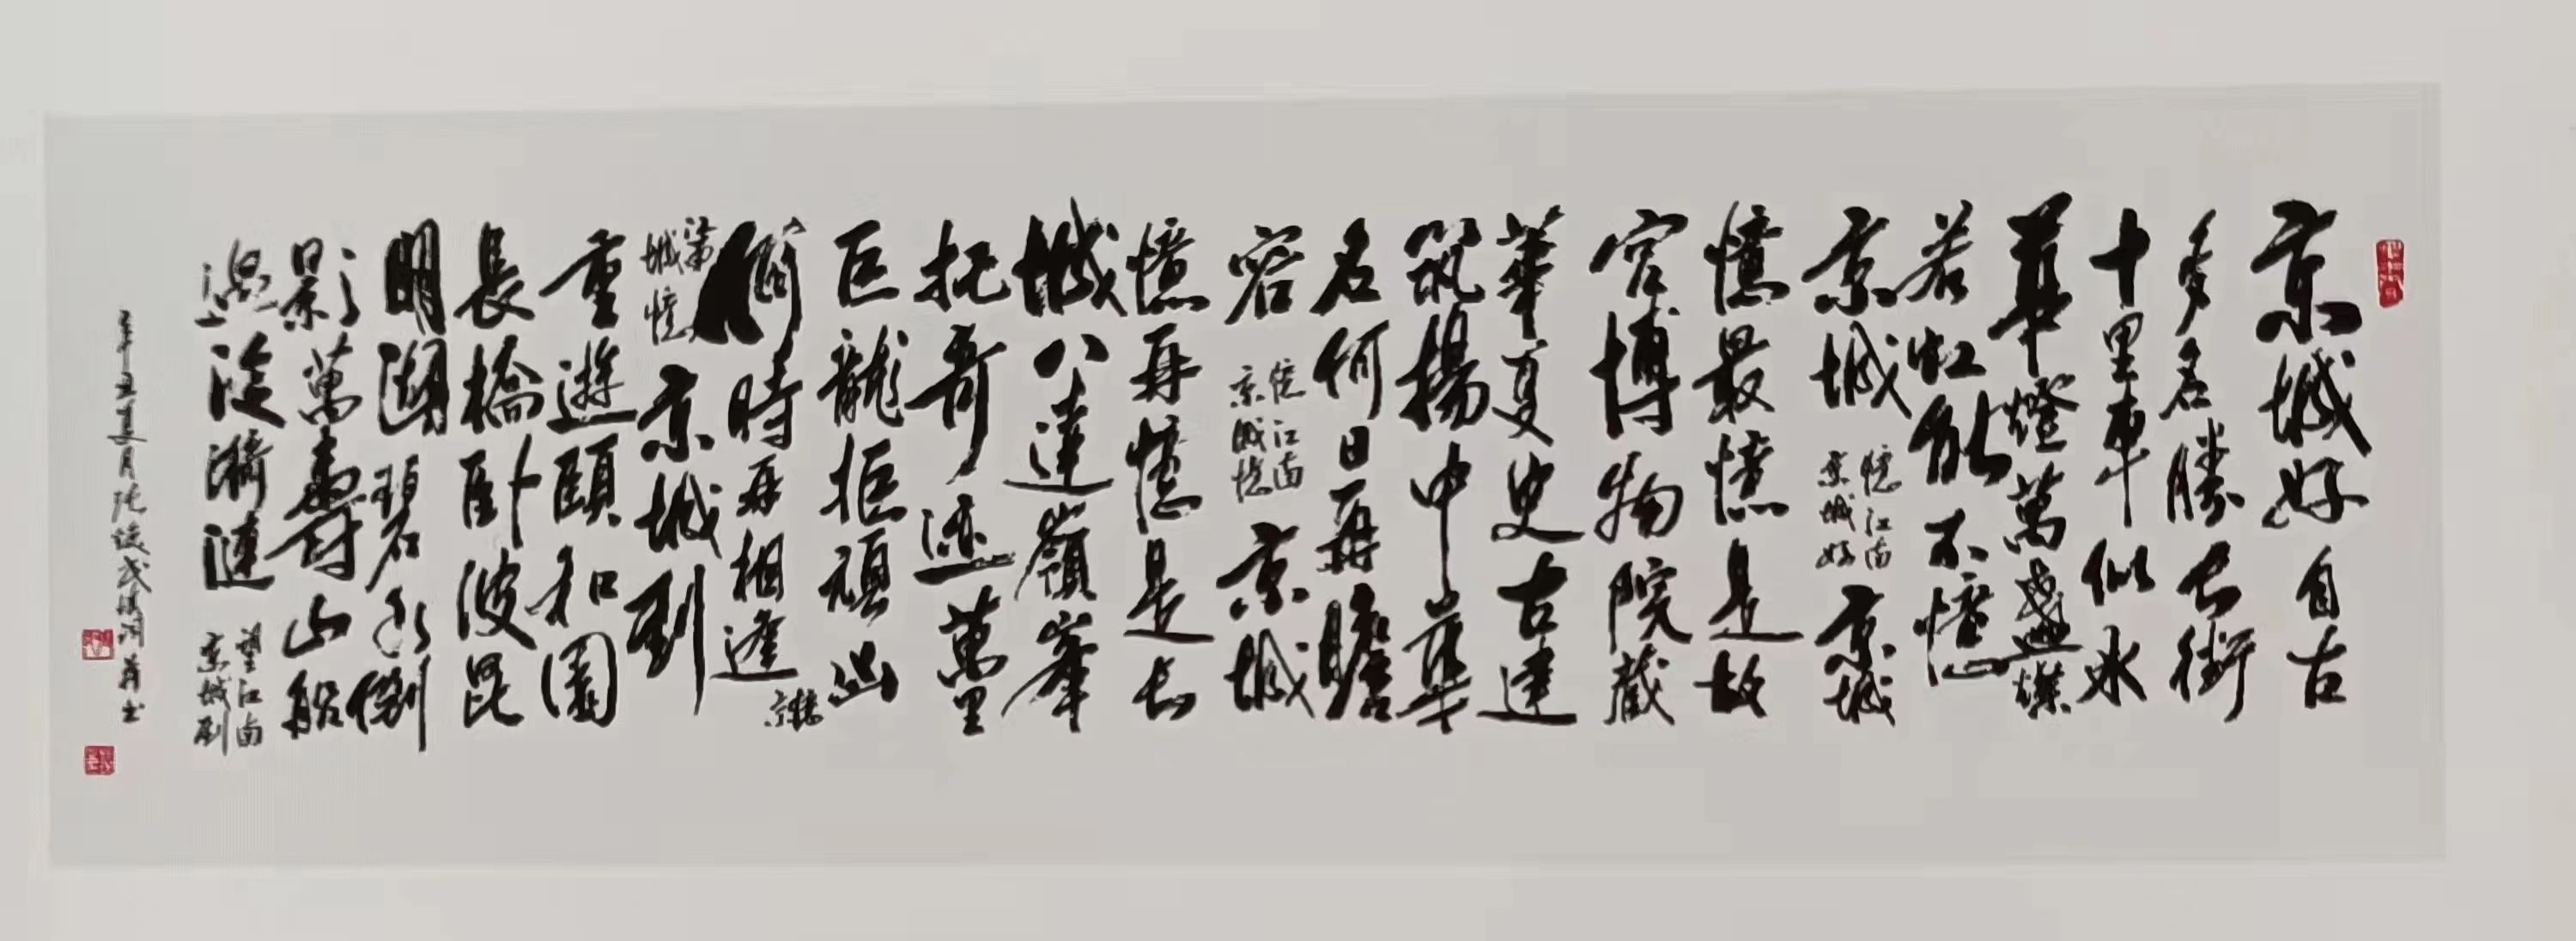 京城好自古
多名勝长街
十里車似水
華燈萬盞燦
若虹能不憶
京城
憶江南
京城好
京城
憶最憶是故
宫博物院藏
華夏史古建
筑揚中華
名何日再瞻
容
憶江南
京城憶
京城
憶再憶是长
城八達嶺峯
托奇迹萬里
巨龍拒頑凶
時再相逢
京城到
重遊頤和園
長橋卧波昆
明湖碧水倒
影
景萬壽山船
漪漣
望江南
京城到
辛丑夏月
书